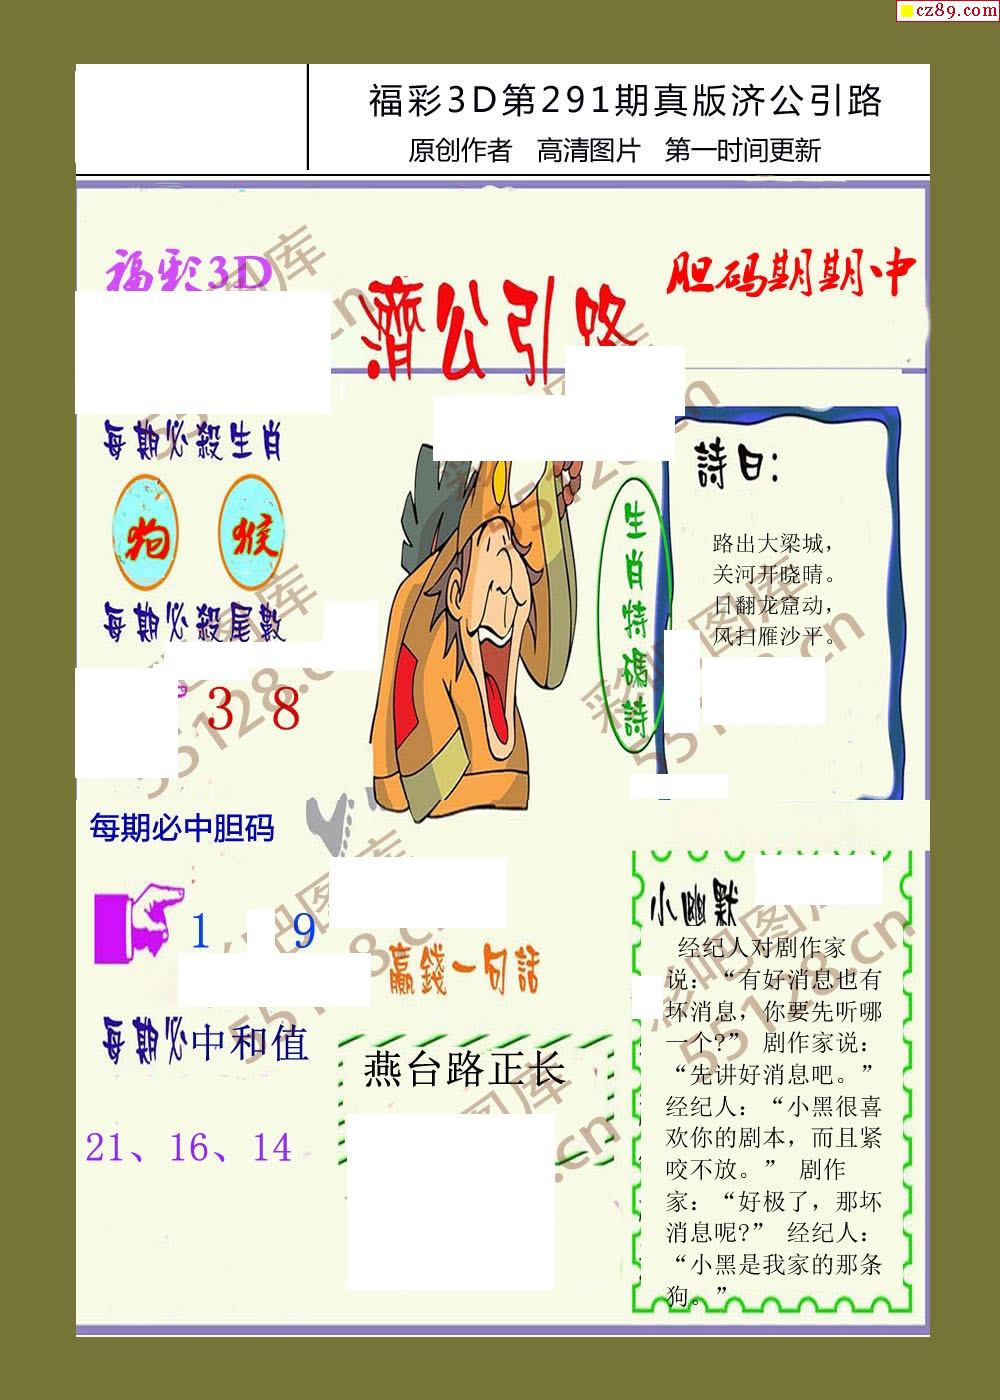 cz89.com
福彩3D第291期真版济公引路
原创作者 高清图片 第一时间更新
福彩3D
濟公引路
胆码期期中
每期必殺生肖
狗 猴
每期必殺尾數
3 8
每期必中胆码
1 9
每期必中和值
21、16、14
生肖特碼詩
詩曰：
路出大梁城，
关河开晓晴。
日翻龙窟动，
风扫雁沙平。
贏錢一句話
燕台路正长
小幽默
经纪人对剧作家
说：“有好消息也有
坏消息，你要先听哪
一个?” 剧作家说：
“先讲好消息吧。”
经纪人：“小黑很喜
欢你的剧本，而且紧
咬不放。” 剧作
家：“好极了，那坏
消息呢?” 经纪人：
“小黑是我家的那条
狗。”
彩吧图库
55128.cn